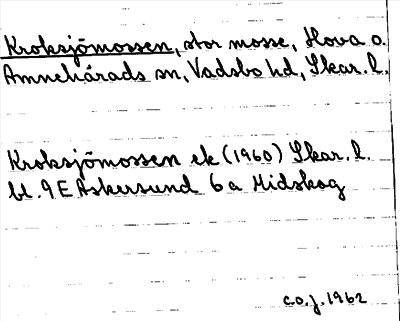 Kroksjömossen, stor mosse, Hova o.
Amnehärads sn, Vadsbo hd, Skar. l.
Kroksjömossen ek (1960) Skar. l.
bl. 9 E Askersund 6 a Midskog
c.o.j. 1962